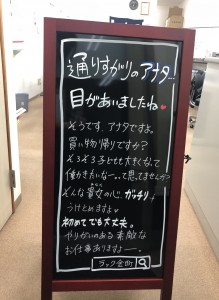 通りすがりのアナタ…
目があいましたね♥
そうです、アナタですよ。
買い物帰りですか？
そろそろ子どもも大きくなって
働きたいな〜って思ってませんか？
そんな貴女の心、ガッチリ
うけとめますよ♥
初めてでも大丈夫。
やりがいのある素敵な
お仕事ありますよー。